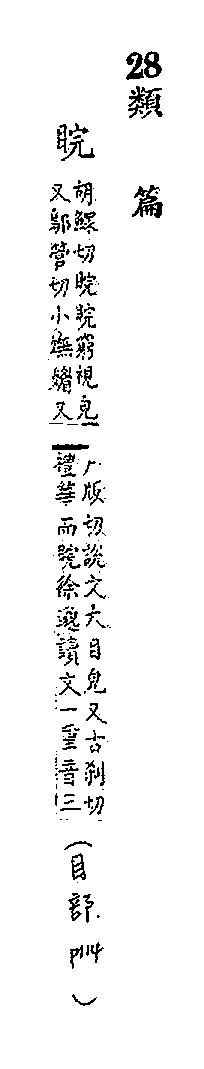 28 類篇
睆
胡鰥切睆睆窮視皃
又鄔管切小嫵媚又
戶版切說文大目皃又古刹切
禮華而睆徐邈讀文一重音三
(目部 p114)